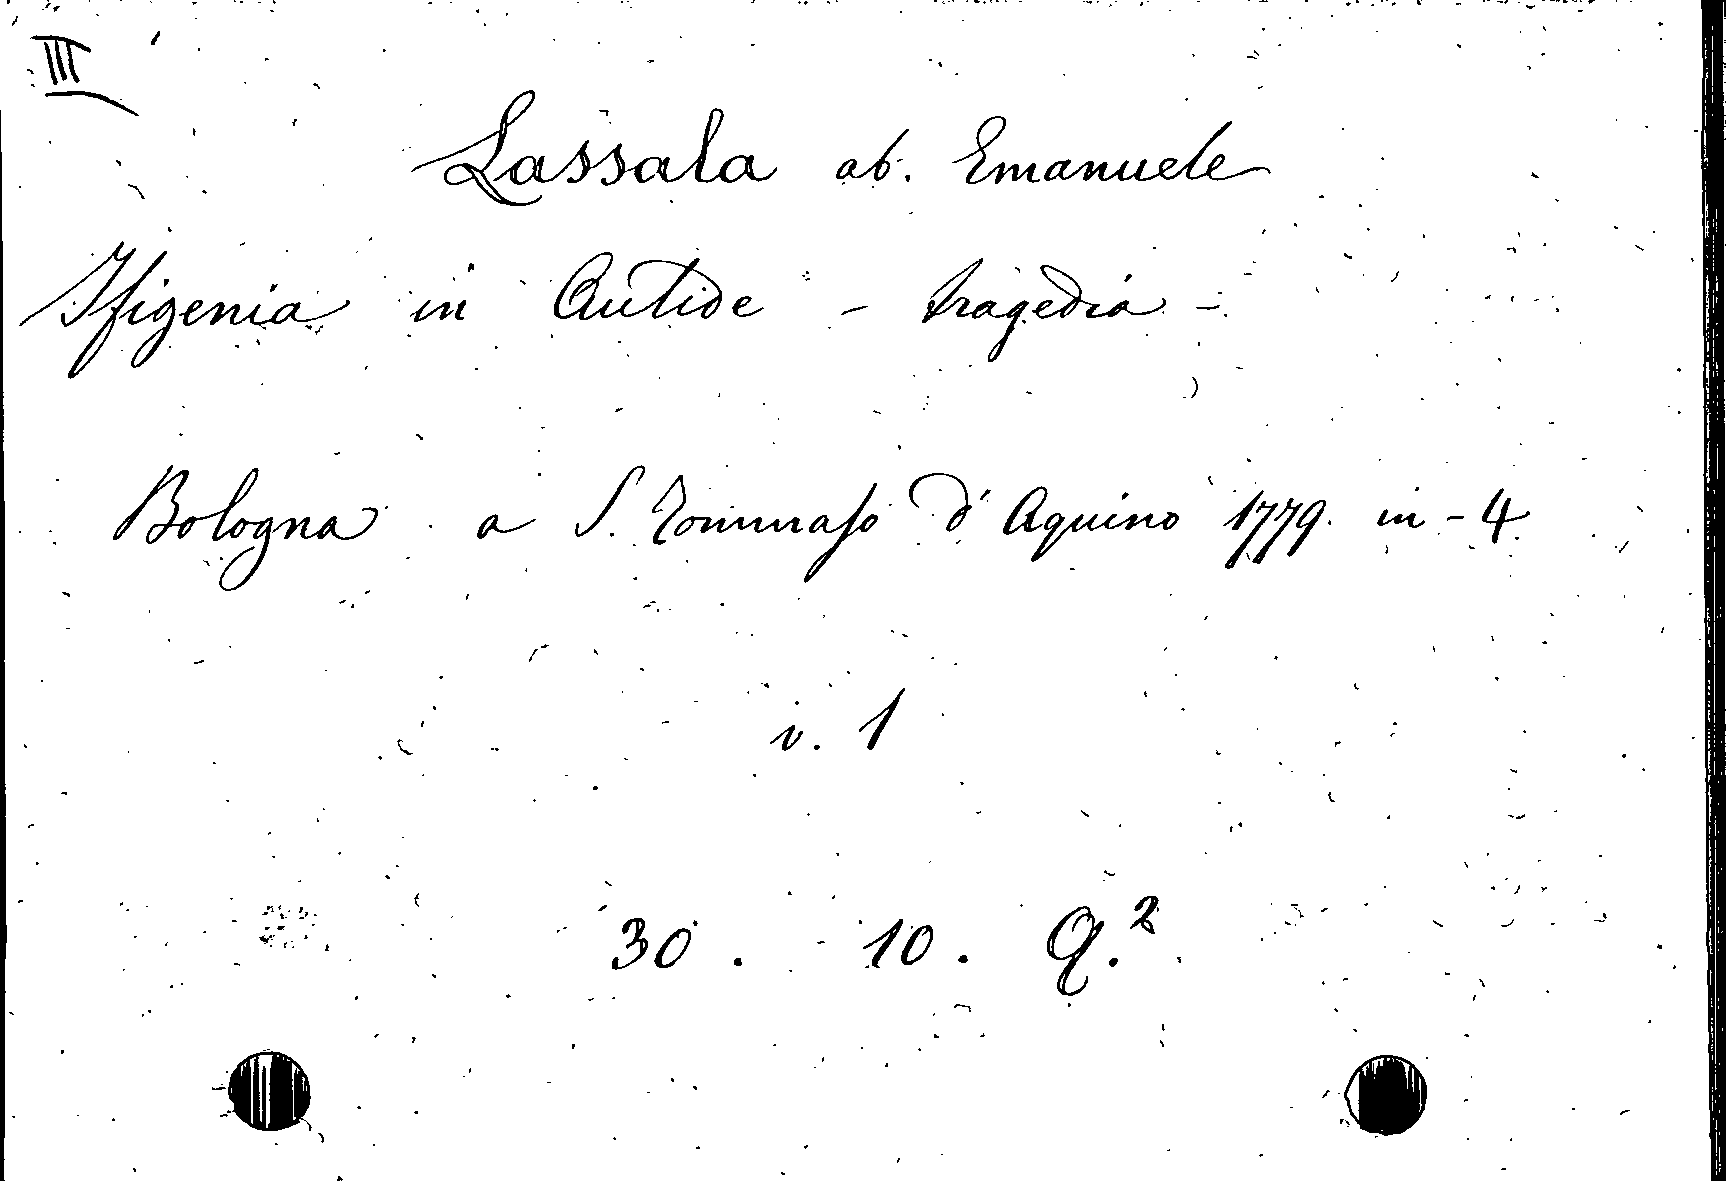 III
Lassala ab. Emanuele
Ifigenia in Aulide - tragedia -
Bologna a S. Tommaso d'Aquino 1779. in-4
v. 1
30. 10. Q.²